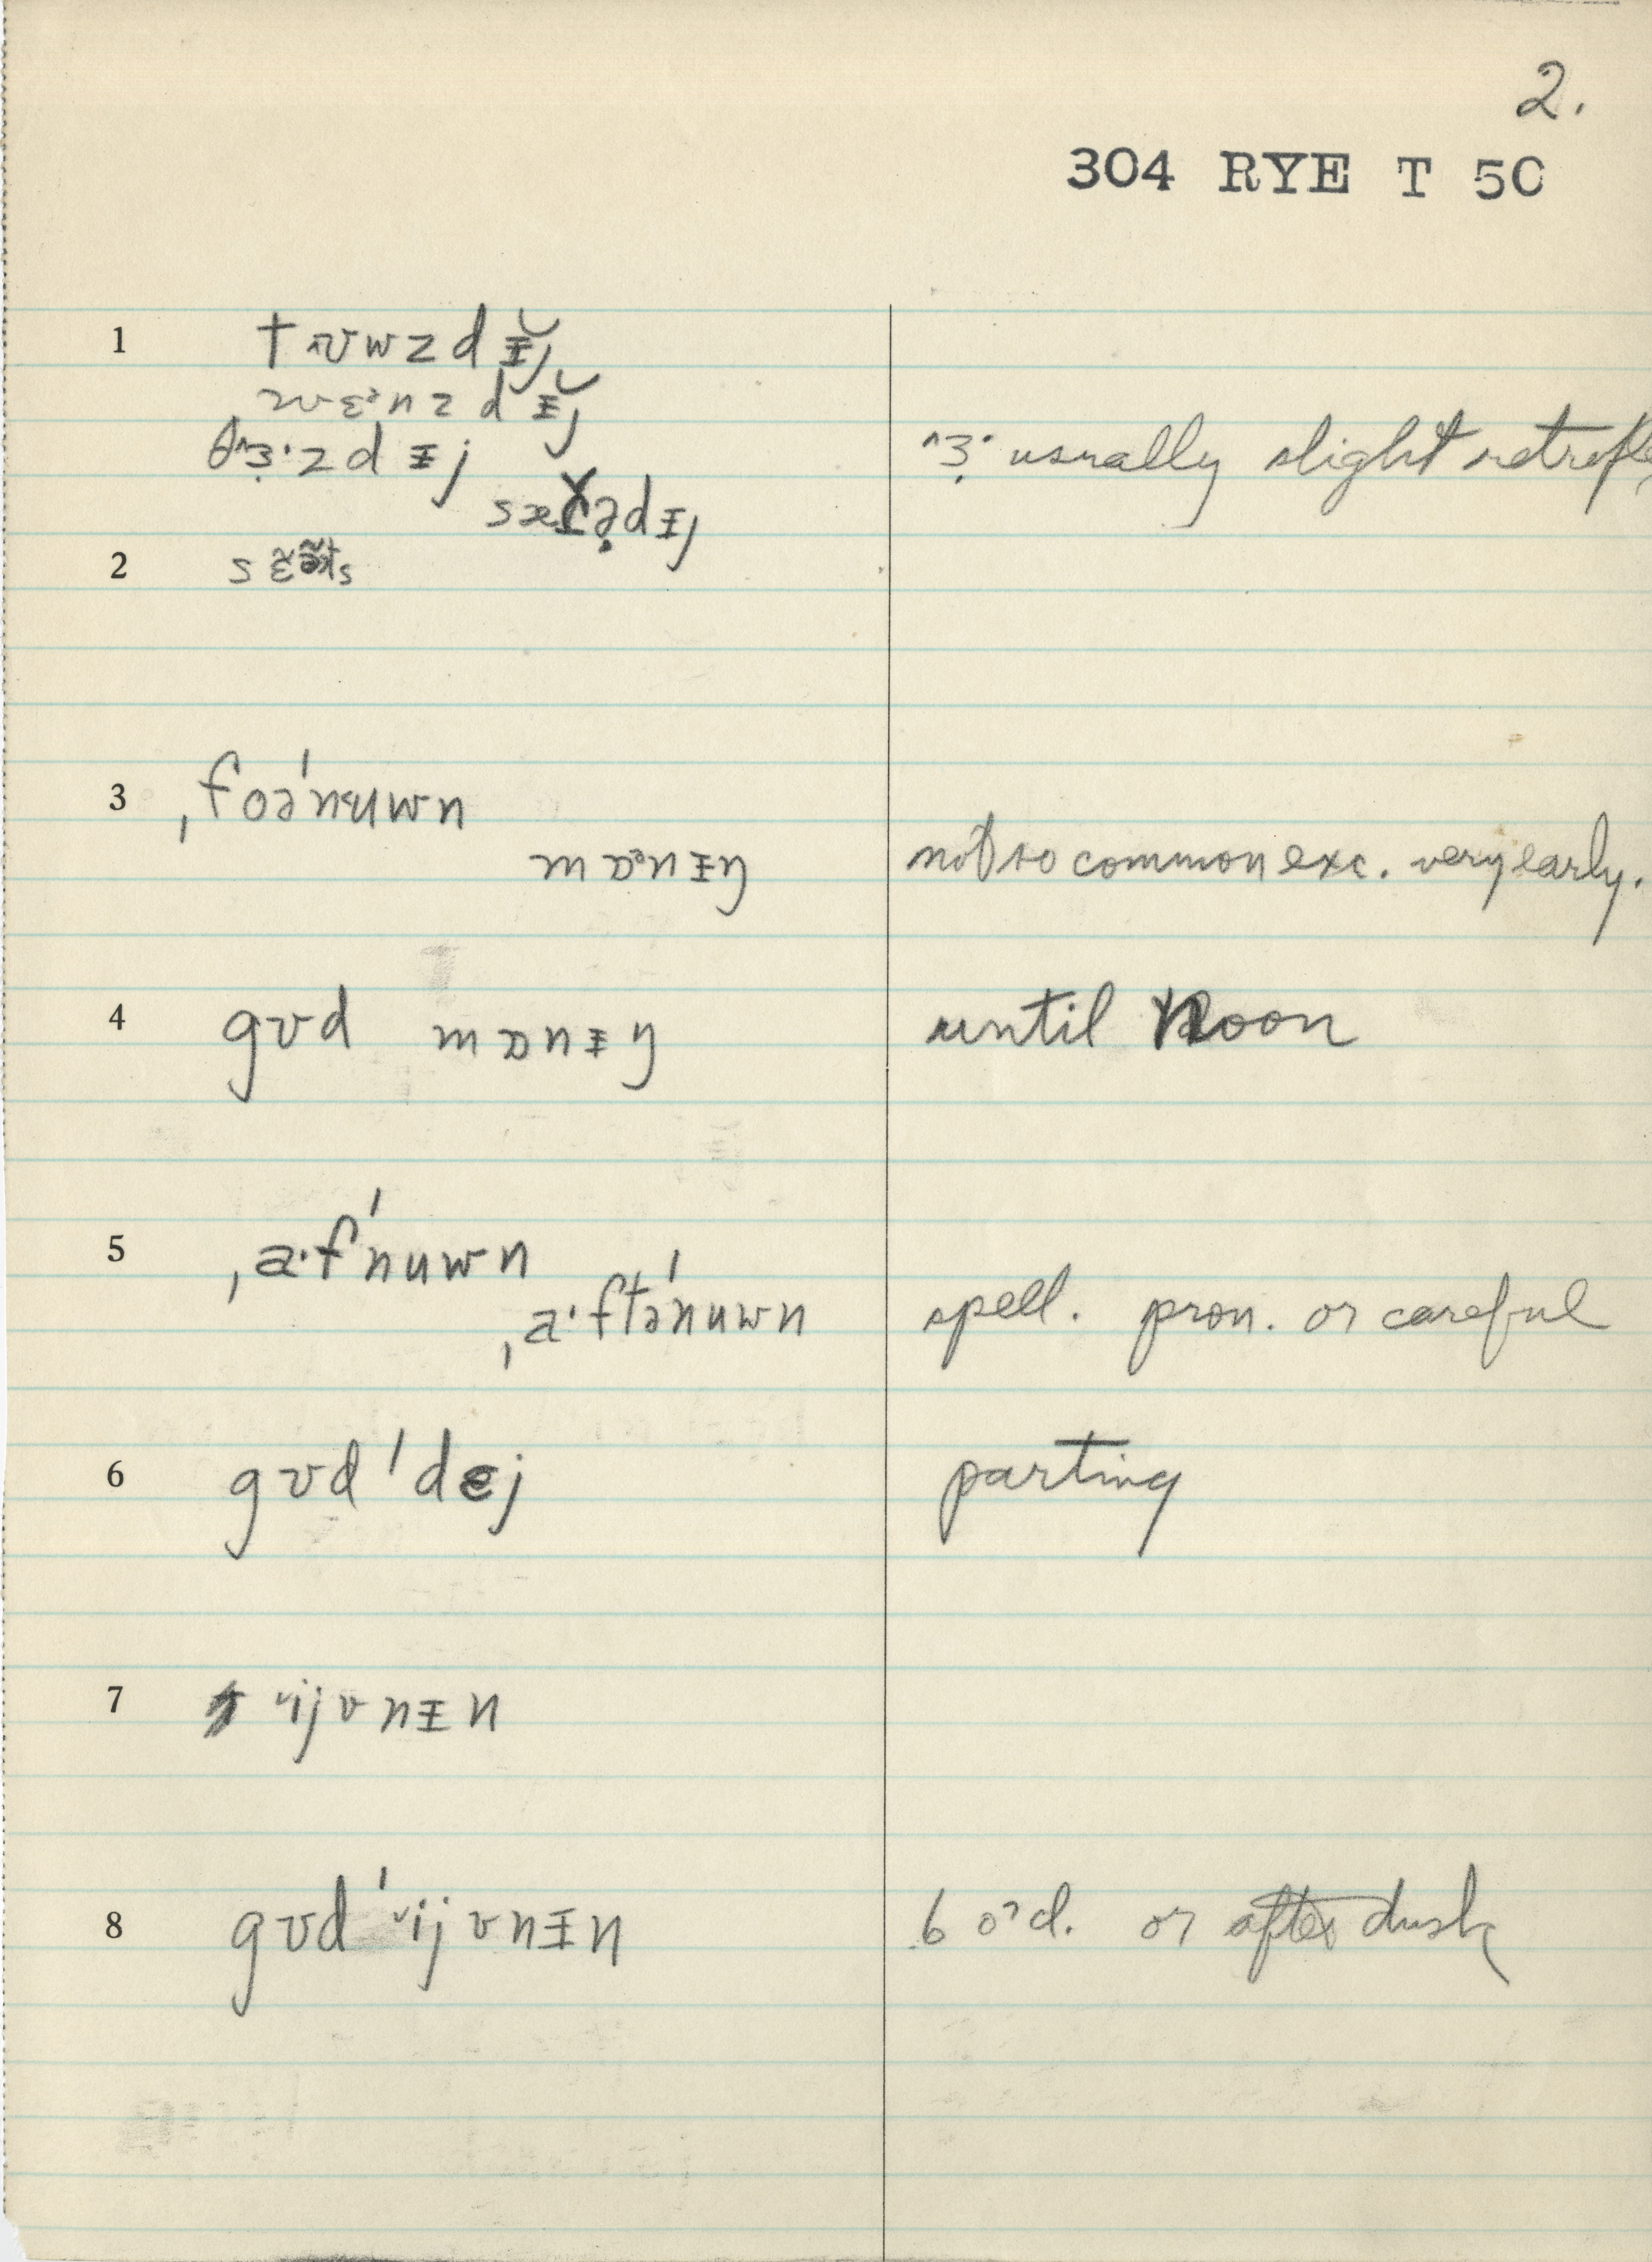 2.
304 RYE T 50
1 t ʌʊwzdɪ̵̆j
wɛᵊnzdɪ̵̆j
θ^ɜ̣·zdɪ̵j ^ɜ̣· usually slight retrofle
2
3 ˌfoə'nʉuwn
mɒᵊnɪ̵ŋ not so common exc. very early.
4 gʊd mɒnɪ̵ŋ until Noon
5 ˌa·f'nuwn
ˌa·ftə'nuwn spell. pron. or careful
6 gʊd 'dej parting
7 ˇijvnɪ̵n
8 gʊd 'ˇijvnɪ̵n 6 o'cl. or after dusk